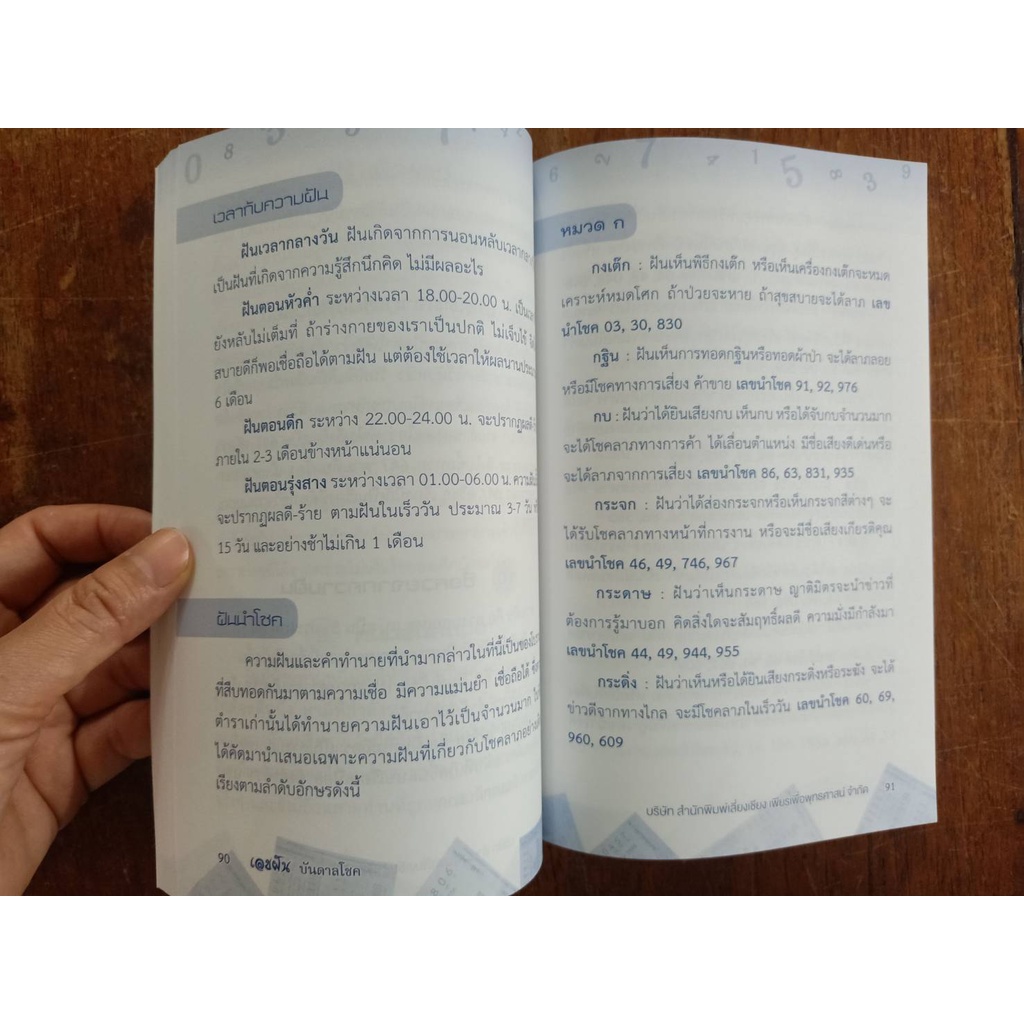 0 8
เวลากับความฝัน
ฝันเวลากลางวัน ฝันเกิดจากการนอนหลับเวลา
เป็นฝันที่เกิดจากความรู้สึกนึกคิด ไม่มีผลอะไร
ฝันตอนหัวค่ำ ระหว่างเวลา 18.00-20.00 น.
ยังหลับไม่เต็มที่ ถ้าร่างกายของเราเป็นปกติ ไม่เจ็บไข้
สบายดีก็พอเชื่อถือได้ตามฝัน แต่ต้องใช้เวลาให้ผลนาน
6 เดือน
ฝันตอนดึก ระหว่าง 22.00-24.00 น. จะปรากฏผลดี
ภายใน 2-3 เดือนข้างหน้าแน่นอน
ฝันตอนรุ่งสาง ระหว่างเวลา 01.00-06.00 น.
จะปรากฏผลดี-ร้าย ตามฝันในเร็ววัน ประมาณ 3-7 วัน
15 วัน และอย่างช้าไม่เกิน 1 เดือน
ฝันนำโชค
ความฝันและคำทำนายที่นำมากล่าวในที่นี้เป็นของ
ที่สืบทอดกันมาตามความเชื่อ มีความแม่นยำ เชื่อถือได้
ตำราเก่านั้นได้ทำนายความฝันเอาไว้เป็นจำนวนมาก
ได้คัดมานำเสนอเฉพาะความฝันที่เกี่ยวกับโชคลาภ
เรียงตามลำดับอักษรดังนี้
90 เลขฝัน บันดาลโชค
6 7 1 5 3 9
หมวด ก
กงเต๊ก : ฝันเห็นพิธีกงเต๊ก หรือเห็นเครื่องกงเต๊กจะหมด
เคราะห์หมดโศก ถ้าป่วยจะหาย ถ้าสุขสบายจะได้ลาภ เลข
นำโชค 03, 30, 830
กฐิน : ฝันเห็นการทอดกฐินหรือทอดผ้าป่า จะได้ลาภลอย
หรือมีโชคทางการเสี่ยง ค้าขาย เลขนำโชค 91, 92, 976
กบ : ฝันว่าได้ยินเสียงกบ เห็นกบ หรือได้จับกบจำนวนมาก
จะได้โชคลาภทางการค้า ได้เลื่อนตำแหน่ง มีชื่อเสียงดีเด่นหรือ
จะได้ลาภจากการเสี่ยง เลขนำโชค 86, 63, 831, 935
กระจก : ฝันว่าได้ส่องกระจกหรือเห็นกระจกสีต่างๆ จะ
ได้รับโชคลาภทางหน้าที่การงาน หรือจะมีชื่อเสียงเกียรติคุณ
เลขนำโชค 46, 49, 746, 967
กระดาษ : ฝันว่าเห็นกระดาษ ญาติมิตรจะนำข่าวที่
ต้องการรู้มาบอก คิดสิ่งใดจะสัมฤทธิ์ผลดี ความมั่งมีกำลังมา
เลขนำโชค 44, 49, 944, 955
กระดิ่ง : ฝันว่าเห็นหรือได้ยินเสียงกระดิ่งหรือระฆัง จะได้
ข่าวดีจากทางไกล จะมีโชคลาภในเร็ววัน เลขนำโชค 60, 69,
960, 609
บริษัท สำนักพิมพ์เลี่ยงเชียง เพียรเพื่อพุทธศาสน์ จำกัด 91